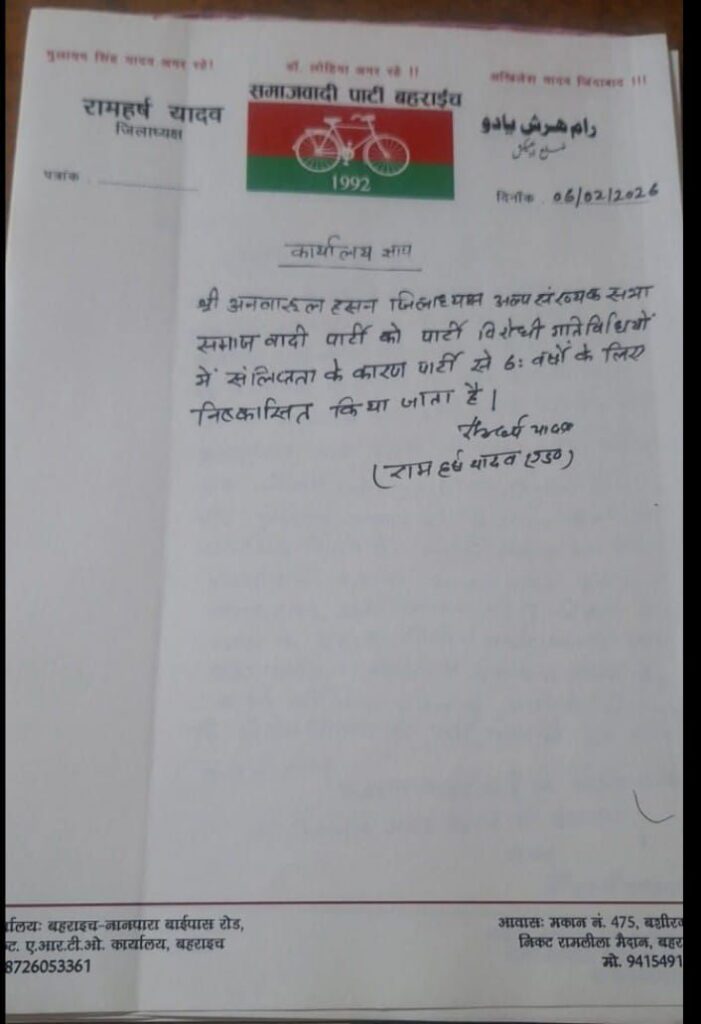 मुलायम सिंह यादव अमर रहे!
डॉ. लोहिया अमर रहे !!
अखिलेश यादव जिन्दाबाद !!!
रामहर्ष यादव
जिलाध्यक्ष
समाजवादी पार्टी बहराइच
1992
رام هرش یادو
पत्रांक .
दिनाँक . 06/02/2026
कार्यालय ज्ञाप
श्री अनवारूल हसन जिलाध्यक्ष अल्पसंख्यक सभा
समाजवादी पार्टी को पार्टी विरोधी गतिविधियों
में संलिप्तता के कारण पार्टी से 6: वर्षो के लिए
निष्कासित किया जाता है।
रामहर्ष यादव
(राम हर्ष यादव एड०)
र्यालयः बहराइच-नानपारा बाईपास रोड,
ट. ए.आर.टी.ओ. कार्यालय, बहराइच
8726053361
आवासः मकान नं. 475, बशीर
निकट रामलीला मैदान, बहर
मो. 9415491